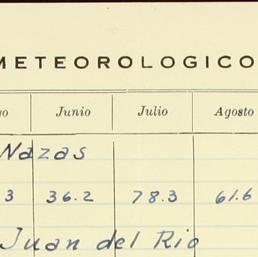 METEOROLOGICO
Junio Julio Agosto
Nazas
3 36.2 78.3 61.6
Juan del Rio